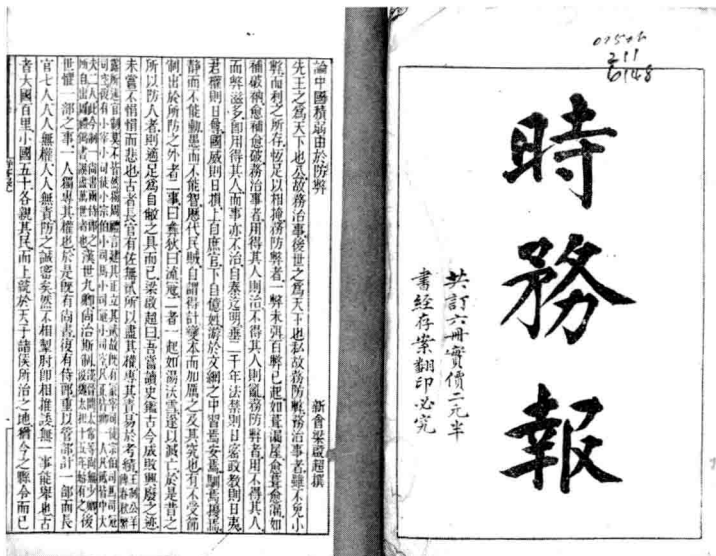 211
6148
時務報
共訂六冊實價二元半
書經存案翻印必究
論中國積弱由於防弊
新會梁啟超撰
先王之為天下也公故務治事後世之為天下也私故務防弊務治事者雖不免小
弊而利之所存恆足以相掩務防弊者一弊未弭百弊已起如葺漏屋愈葺愈漏如
補破衲愈補愈破務治事者用得其人則治不得其人則亂務防弊者用不得其人
而弊滋多即用得其人而事亦不治自秦迄明垂二千年法禁則日密政教則日夷
君權則日尊國威則日損上自庶官下自億姓游於文網之中習焉安焉馴焉擾焉
靜而不能動愚而不能智歷代民賊自謂得計變本而加厲之及其究也有不受節
制出於所防之外者二事曰彝狄曰流寇二者一起如湯沃雪遂以滅亡於是昔之
所以防人者則適足為自敝之具而已梁啟超曰吾嘗讀史鑑古今成敗興廢之迹
未嘗不惘惘而悲也古者長官有佐無貳所以盡其權專其責易於考績王制公羊春秋繁
露所述官制莫不皆然獨周禮言建其正立其貳故既有冢宰司徒宗伯司馬司寇
司空復有小宰小司徒小宗伯小司馬小司寇小司空
世懼一部之事一人獨專其權也於是既有尚書復有侍郎重以管部計一部而長
官七人人人無權人人無責防之誠密矣然不相掣肘即相推諉無一事能舉也古
者大國百里小國五十各親其民而上統於天子諸侯所治之地猶今之縣令而已